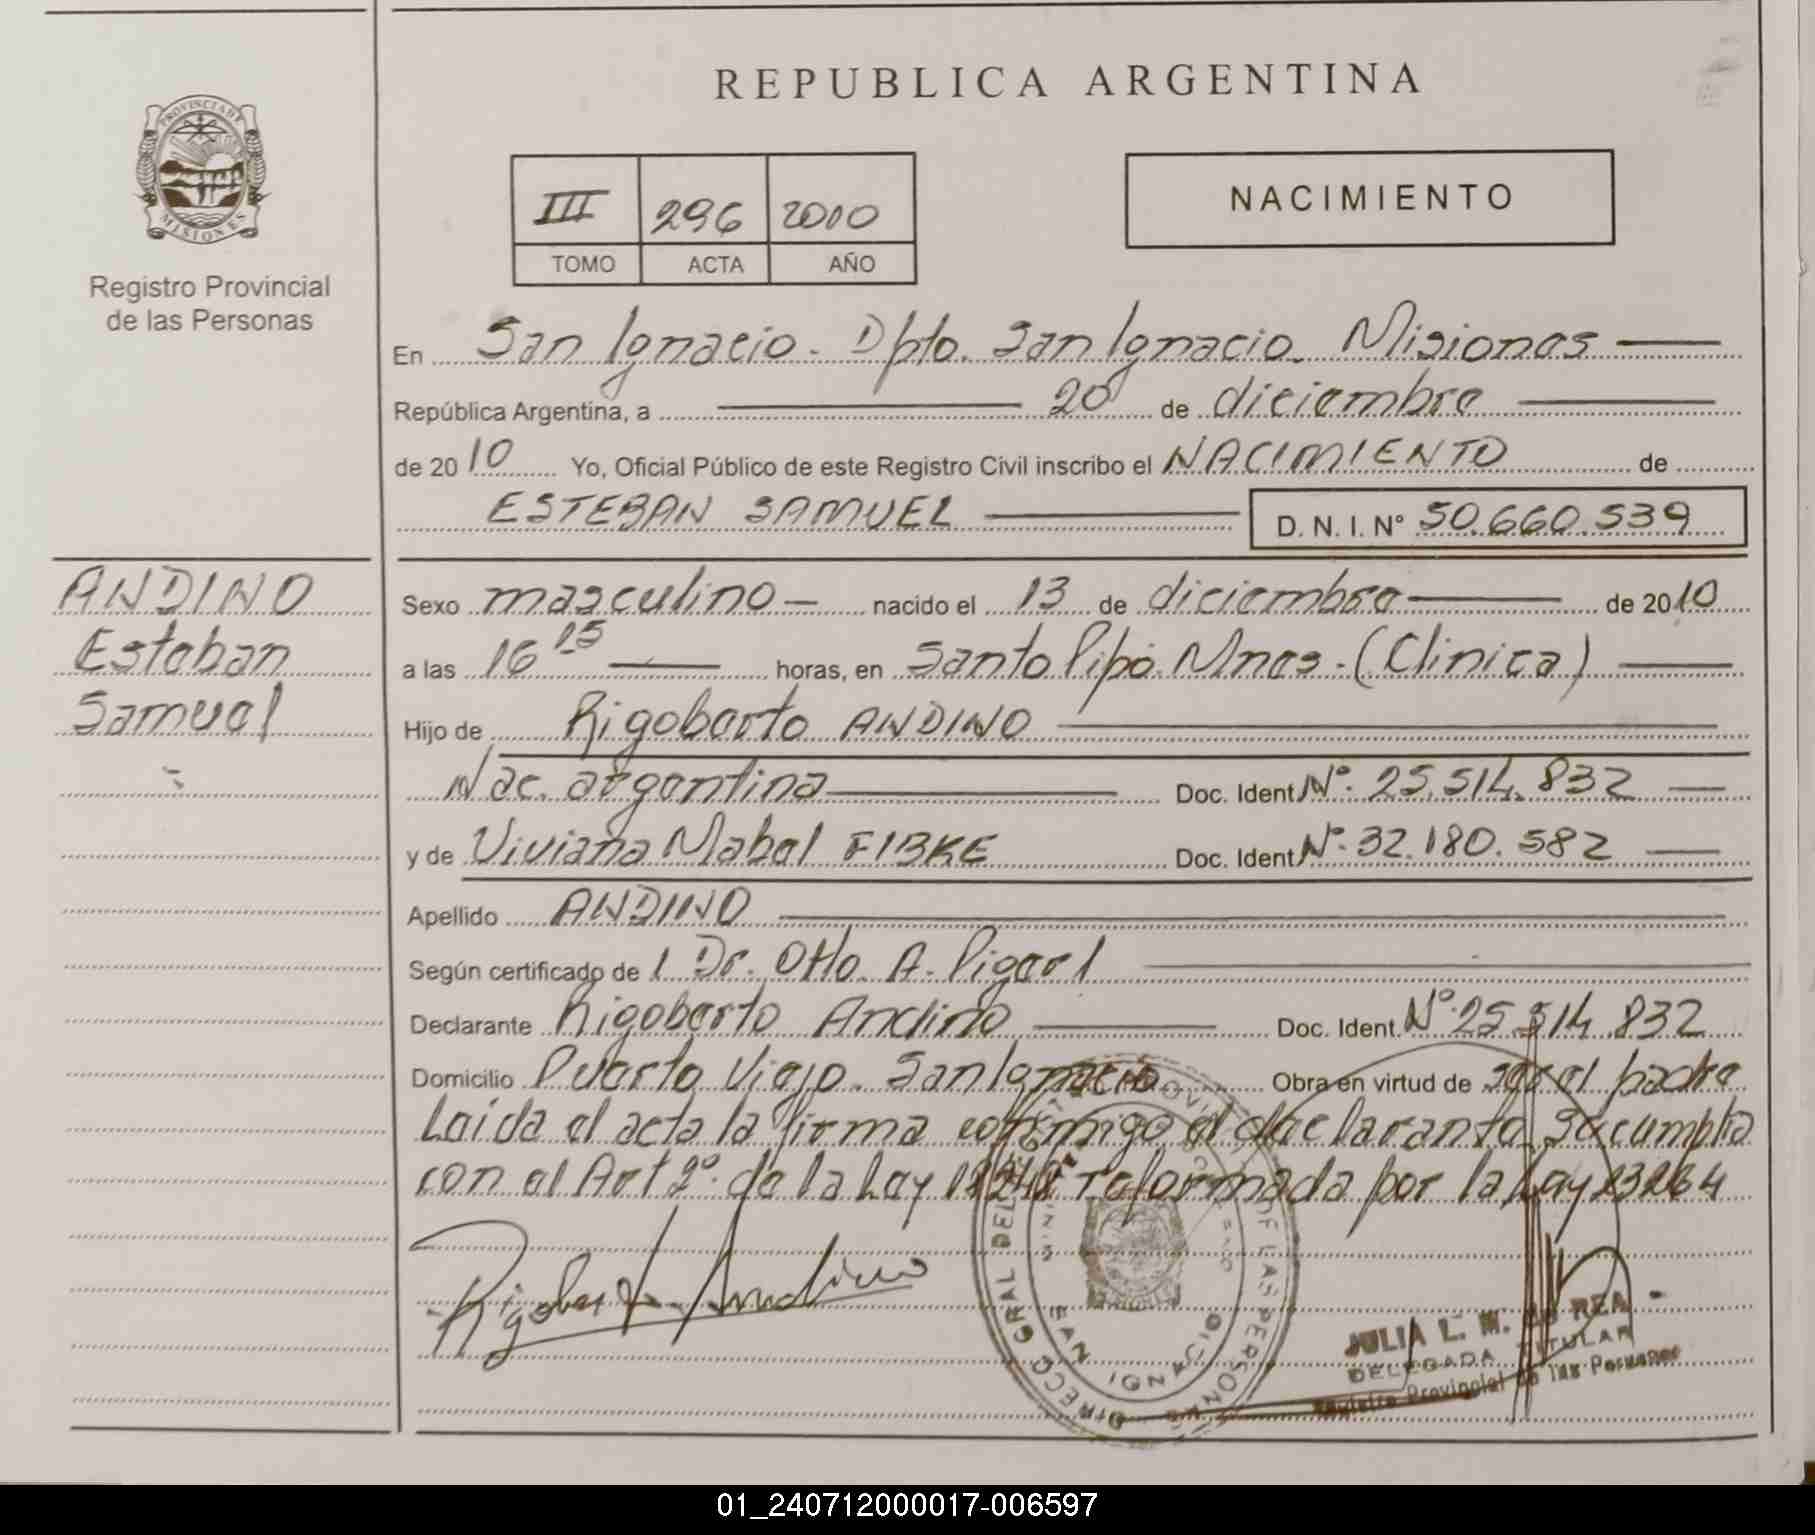 REPUBLICA ARGENTINA
PROVINCIA DE
MISIONES
Registro Provincial
de las Personas
III 296 2010
TOMO ACTA AÑO
NACIMIENTO
En San Ignacio. Dpto. San Ignacio. Misiones
República Argentina, a 20 de diciembre
de 2010 Yo, Oficial Público de este Registro Civil inscribo el NACIMIENTO de
ESTEBAN SAMUEL D. N. I. N° 50.660.539
ANDINO
Esteban
Samuel
Sexo masculino nacido el 13 de diciembre de 2010
a las 16 15 horas, en Santo Pipó. Mnes. (Clinica)
Hijo de Rigoberto ANDINO
Nac. argentina Doc. Ident N° 25.514.832
y de Viviana Mabel FIBKE Doc. Ident N° 32.180.582
Apellido ANDINO
Según certificado de l Dr. Otto A.
Declarante Rigoberto Andino Doc. Ident. N° 25.514.832
Domicilio Puerto Viejo. San Ignacio Obra en virtud de ser el padre
Leída el acta la firma conmigo el declarante. Se cumplió
con el Art 2° de la Ley reformada por la Ley 23264
Rigoberto Andino
DIRECC GRAL DEL DE LAS PERSONAS
SAN IGNACIO
JULIA L. M. DE REA
DELEGADA TITULAR
Registro Provincial de las Personas
01_240712000017-006597